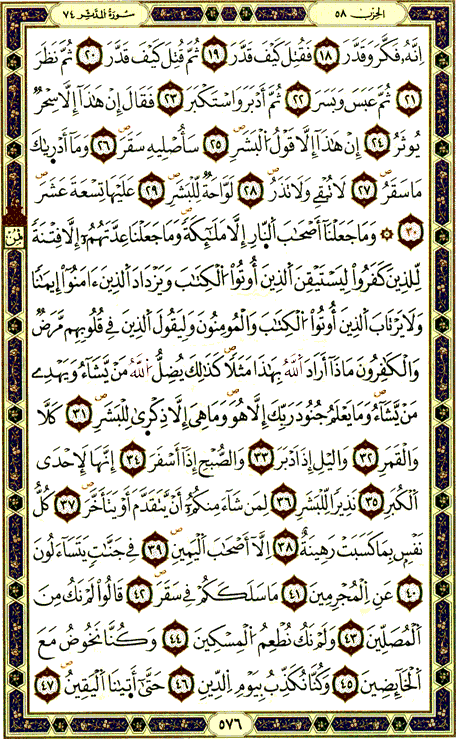 الحزب ٥٨
سورة المدثر ٧٤
إِنَّهُ فَكَّرَ وَقَدَّرَ ١٨ فَقُتِلَ كَيْفَ قَدَّرَ ١٩ ثُمَّ قُتِلَ كَيْفَ قَدَّرَ ٢٠ ثُمَّ نَظَرَ
٢١ ثُمَّ عَبَسَ وَبَسَرَ ٢٢ ثُمَّ أَدْبَرَ وَاسْتَكْبَرَ ٢٣ فَقَالَ إِنْ هَٰذَا إِلَّا سِحْرٌ
يُوثَرُ ٢٤ إِنْ هَٰذَا إِلَّا قَوْلُ الْبَشَرِ ٢٥ سَأُصْلِيهِ سَقَرَ ٢٦ وَمَا أَدْرَىٰكَ
مَا سَقَرُ ٢٧ لَا تُبْقِي وَلَا تَذَرُ ٢٨ لَوَّاحَةٌ لِّلْبَشَرِ ٢٩ عَلَيْهَا تِسْعَةَ عَشَرَ
٣٠ ۞ وَمَا جَعَلْنَا أَصْحَٰبَ النَّارِ إِلَّا مَلَٰئِكَةً وَمَا جَعَلْنَا عِدَّتَهُمُ إِلَّا فِتْنَةً
لِّلَّذِينَ كَفَرُوا لِيَسْتَيْقِنَ الَّذِينَ أُوتُوا الْكِتَٰبَ وَيَزْدَادَ الَّذِينَ ءَامَنُوا إِيمَٰنًا
وَلَا يَرْتَابَ الَّذِينَ أُوتُوا الْكِتَٰبَ وَالْمُومِنُونَ وَلِيَقُولَ الَّذِينَ فِي قُلُوبِهِم مَّرَضٌ
وَالْكَٰفِرُونَ مَاذَا أَرَادَ اللَّهُ بِهَٰذَا مَثَلًا كَذَٰلِكَ يُضِلُّ اللَّهُ مَنْ يَّشَاءُ وَيَهْدِے
مَنْ يَّشَاءُ وَمَا يَعْلَمُ جُنُودَ رَبِّكَ إِلَّا هُوَ وَمَا هِيَ إِلَّا ذِكْرَىٰ لِلْبَشَرِ ٣١ كَلَّا
وَالْقَمَرِ ٣٢ وَالَّيْلِ إِذَ اَدْبَرَ ٣٣ وَالصُّبْحِ إِذَا أَسْفَرَ ٣٤ إِنَّهَا لَإِحْدَى
الْكُبَرِ ٣٥ نَذِيرًا لِّلْبَشَرِ ٣٦ لِمَن شَاءَ مِنكُمُ أَنْ يَّتَقَدَّمَ أَوْ يَتَأَخَّرَ ٣٧ كُلُّ
نَفْسٍ بِمَا كَسَبَتْ رَهِينَةٌ ٣٨ إِلَّا أَصْحَٰبَ الْيَمِينِ ٣٩ فِي جَنَّٰتٍ يَتَسَاءَلُونَ
٤٠ عَنِ الْمُجْرِمِينَ ٤١ مَا سَلَكَكُمْ فِي سَقَرَ ٤٢ قَالُوا لَمْ نَكُ مِنَ
الْمُصَلِّينَ ٤٣ وَلَمْ نَكُ نُطْعِمُ الْمِسْكِينَ ٤٤ وَكُنَّا نَخُوضُ مَعَ
الْخَائِضِينَ ٤٥ وَكُنَّا نُكَذِّبُ بِيَوْمِ الدِّينِ ٤٦ حَتَّىٰ أَتَىٰنَا الْيَقِينُ ٤٧
ثمن
٥٧٦